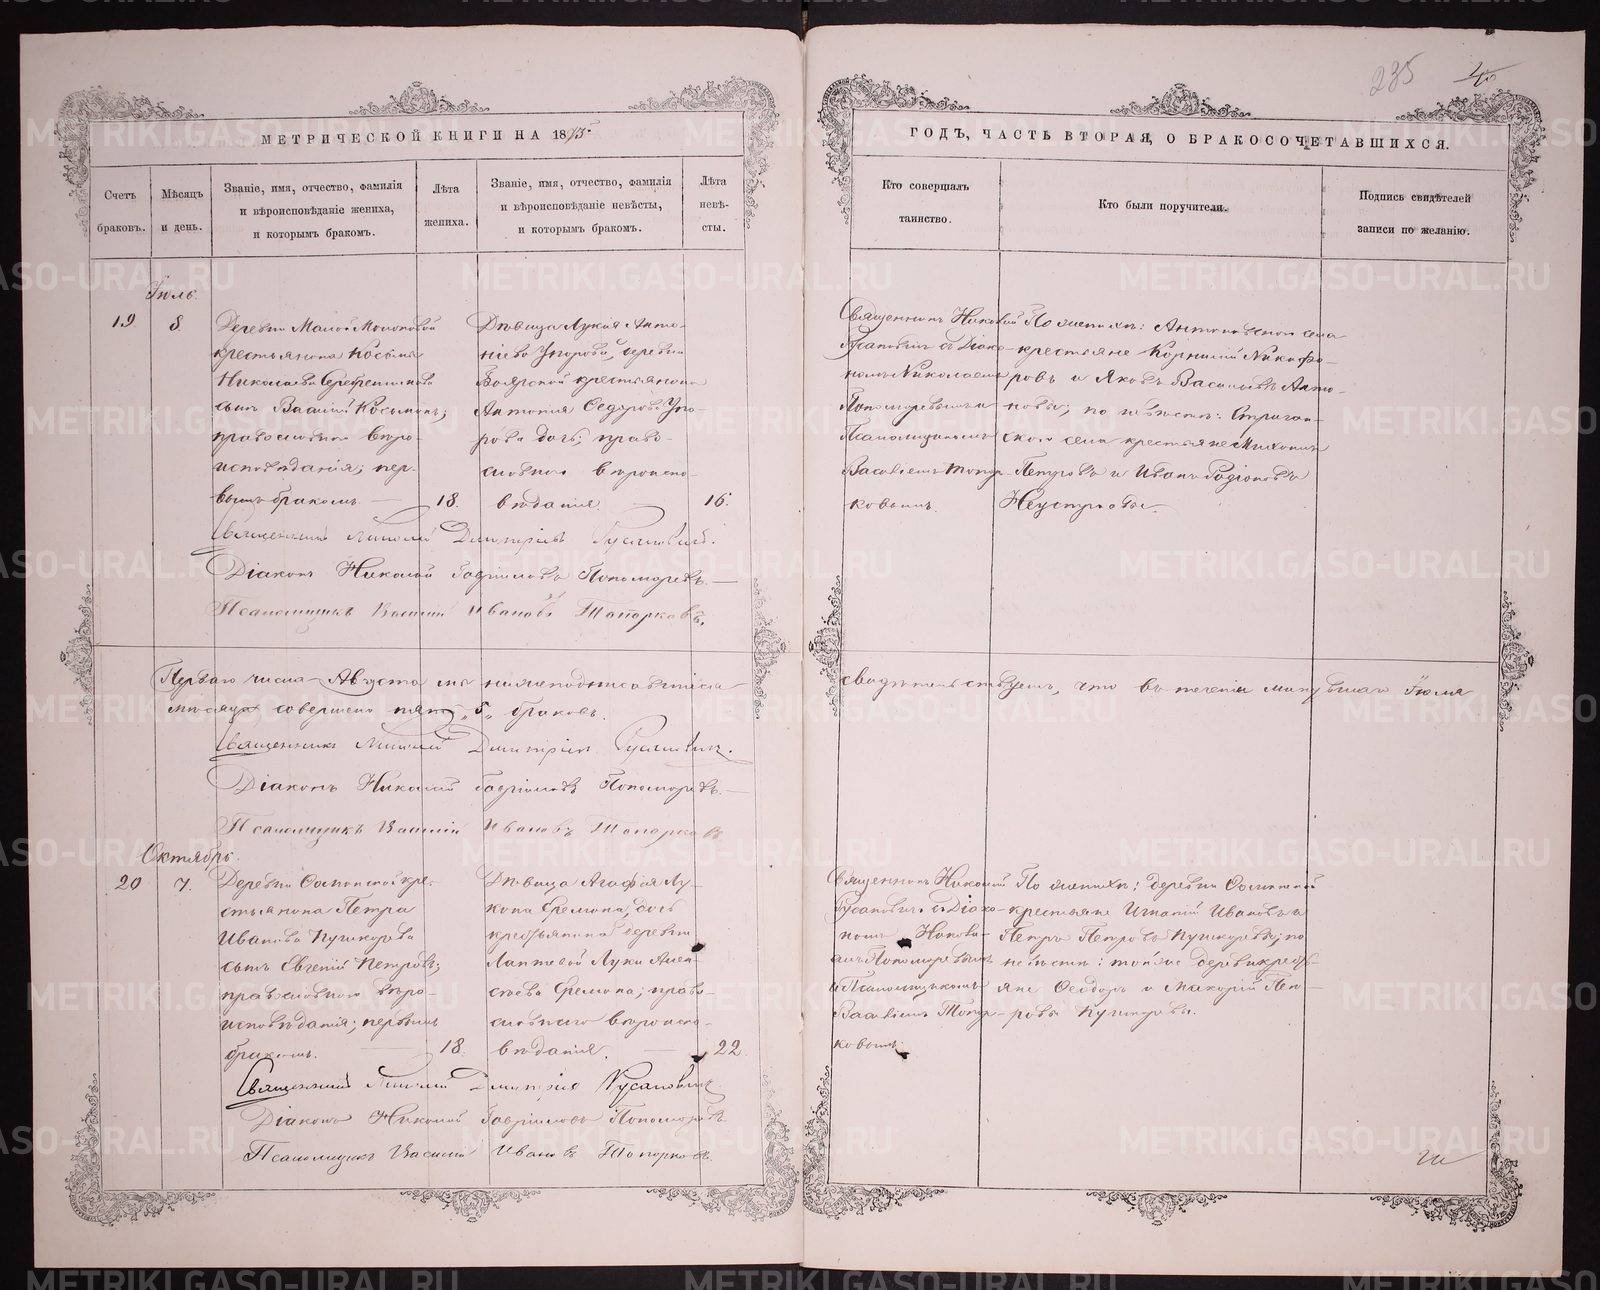 235
МЕТРИЧЕСКОЙ КНИГИ НА 1875
ГОДЪ, ЧАСТЬ ВТОРАЯ, О БРАКОСОЧЕТАВШИХСЯ.
Счетъ браковъ.
Мѣсяцъ и день.
Званіе, имя, отчество, фамилія
и вѣроисповѣданіе жениха,
и которымъ бракомъ.
Лѣта
жениха.
Званіе, имя, отчество, фамилія
и вѣроисповѣданіе невѣсты,
и которымъ бракомъ.
Лѣта
невѣ-
сты.
Кто совершалъ
таинство.
Кто были поручители.
Подпись свидѣтелей
записи по желанію.
Іюль.
19
8
Деревни Малой
крестьянина Косьмы
Николаева Серебренникова
сынъ Василій Косьминъ;
православнаго вѣро-
исповѣданія; пер-
вымъ бракомъ
18.
Дѣвица Лукія Анто-
ніева Упорова, деревни
Боярской крестьянина
Антонія Ѳедорова Упо-
рова дочь; право-
славнаго вѣроиспо-
вѣданія
16.
Священникъ Николай
Русановичъ съ Діако-
номъ Николаемъ
Пономаревымъ и
Псаломщикомъ
Василіемъ Топор-
ковымъ.
По женихѣ: Антоновскаго села
крестьяне Корнилій Никифо-
ровъ и Яковъ Васильевъ Анто-
новы; по невѣстѣ:
скаго села крестьяне
Петровъ и Иванъ Родіоновъ
Неустроевы.
Священникъ Николай Димитріевъ Русановичъ.
Діаконъ Николай Гавріиловъ Пономаревъ.
Псаломщикъ Василій Ивановъ Топорковъ.
Перваго числа Августа мы нижеподписавшіеся свидѣтельствуемъ, что въ теченіи минувшаго Іюля
мѣсяца совершено пять „5„ браковъ.
Священникъ Николай Димитріевъ Русановичъ.
Діаконъ Николай Гавріиловъ Пономаревъ.
Псаломщикъ Василій Ивановъ Топорковъ
Октябрь.
20
7.
Деревни кре-
стьянина Петра
Иванова Пушкарева
сынъ Евгеній Петровъ;
православнаго вѣро-
исповѣданія; первымъ
бракомъ.
18.
Дѣвица Агафія Лу-
кина Еремина, дочь
крестьянина деревни
Лаптевой Луки Алек-
сѣева Еремина; право-
славнаго вѣроиспо-
вѣданія.
22.
Священникъ Николай
Русановичъ съ Діако-
номъ Никола-
емъ Пономаревымъ
и Псаломщикомъ
Василіемъ Топор-
ковымъ.
По женихѣ: деревни
крестьяне Игнатій Ивановъ и
Петръ Петровъ Пушкаревы; по
невѣстѣ: той же деревни кресть-
яне Ѳеодоръ и Макарій Пет-
ровы Пушкаревы.
Священникъ Николай Димитріевъ Русановичъ
Діаконъ Николай Гавріиловъ Пономаревъ
Псаломщикъ Василій Ивановъ Топорковъ.
METRIKI.GASO-URAL.RU